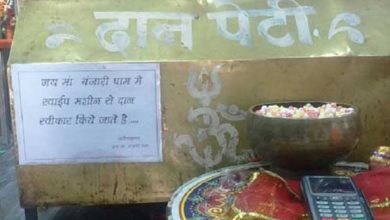 दान पेटी
जय मां बंजारी धाम में
स्वाईप मशीन से दान
स्वीकार किये जाते है ....
ॐ